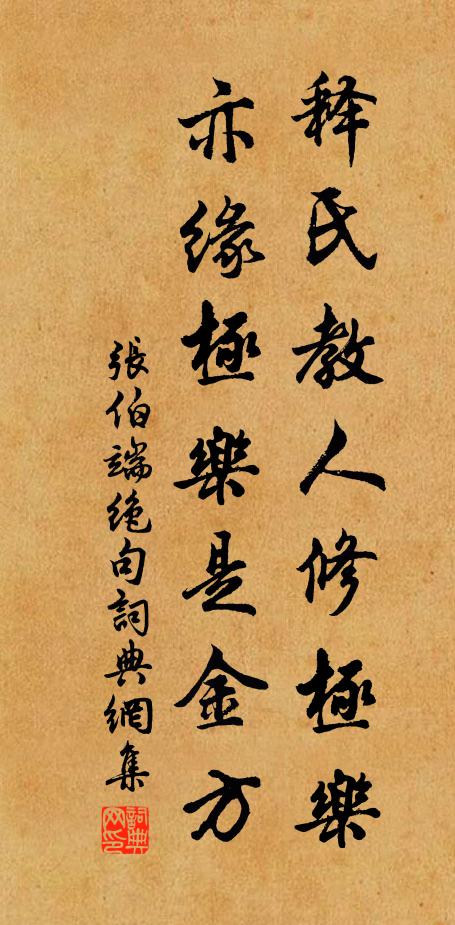 释氏教人修極樂
亦缘極樂是金方
張伯端绝句詞典網集
詞典网印